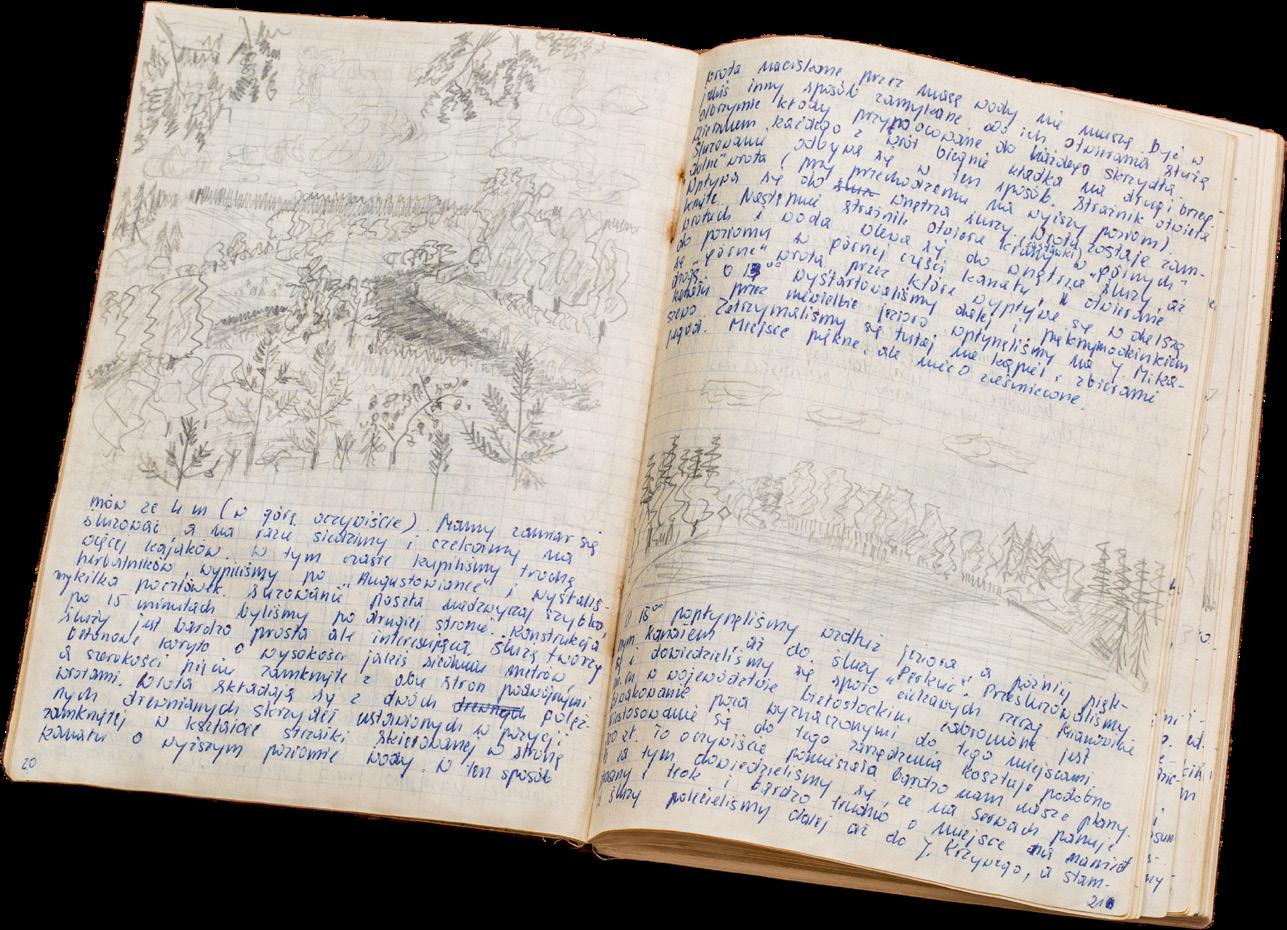 mów ze 4 m (w górę oczywiście). Mamy zamiar się
śluzować a na razie siedzimy i czekamy na
więcej kajaków. W tym czasie kupiliśmy trochę
herbatników, wypiliśmy po "Augustowiance" i wysłaliś-
my kilka pocztówek. Śluzowanie poszło nadzwyczaj szybko,
po 15 minutach byliśmy po drugiej stronie. Konstrukcja
śluzy jest bardzo prosta ale interesująca. Śluzę tworzy
betonowe koryto o wysokości jakiś siedmiu metrów
a szerokości pięciu zamknięte z obu stron podwójnymi
wrotami. Wrota składają się z dwóch potęż-
nych drewnianych skrzydeł ustawionych w pozycji
zamkniętej w kształcie strzałki skierowanej w stronę
kanału o wyższym poziomie wody. W ten sposób
20
wrota naciskane przez masę wody nie muszą być w
jakiś inny sposób zamykane. Do ich otwierania służą
olbrzymie kłody przymocowane do każdego skrzydła.
Wierzchem każdego z wrót biegnie kładka na drugi brzeg.
Śluzowanie odbywa się w ten sposób. Strażnik otwiera
"dolne" wrota (przy przechodzeniu na wyższy poziom).
Wpływa się do wnętrza śluzy. Wrota zostają zam-
knięte. Następnie strażnik otwiera krany (zastawki) w "górnych"
wrotach i woda wlewa się do wnętrza śluzy, aż
do poziomu w górnej części kanału, i otwierane
są "górne" wrota przez które wypływa się w dalszą
drogę. O 13⁰⁰ wystartowaliśmy dalej i pięknym odcinkiem
kanału przez niewielkie jezioro wpłynęliśmy na J. Mika-
szewo. Zatrzymaliśmy się tutaj na kąpiel i zbieranie
jagód. Miejsce piękne, ale nieco zaśmiecone.
O 15⁰⁰ popłynęliśmy wzdłuż jeziora a później pięk-
nym kanałem aż do śluzy "Perkuć". Prześluzowaliśmy
się i dowiedzieliśmy się sporo ciekawych rzeczy. Mianowicie
w województwie białostockim zabronione jest
biwakowanie poza wyznaczonymi do tego miejscami.
się do tego zarządzenia kosztuje podobno
zł. To oczywiście pomieszało bardzo nam nasze plany.
Poza tym dowiedzieliśmy się, że na Serwach panuje
tłok i bardzo trudno o miejsce na namiot.
śluzy polecieliśmy dalej aż do J. Krzywego, a stam-
21